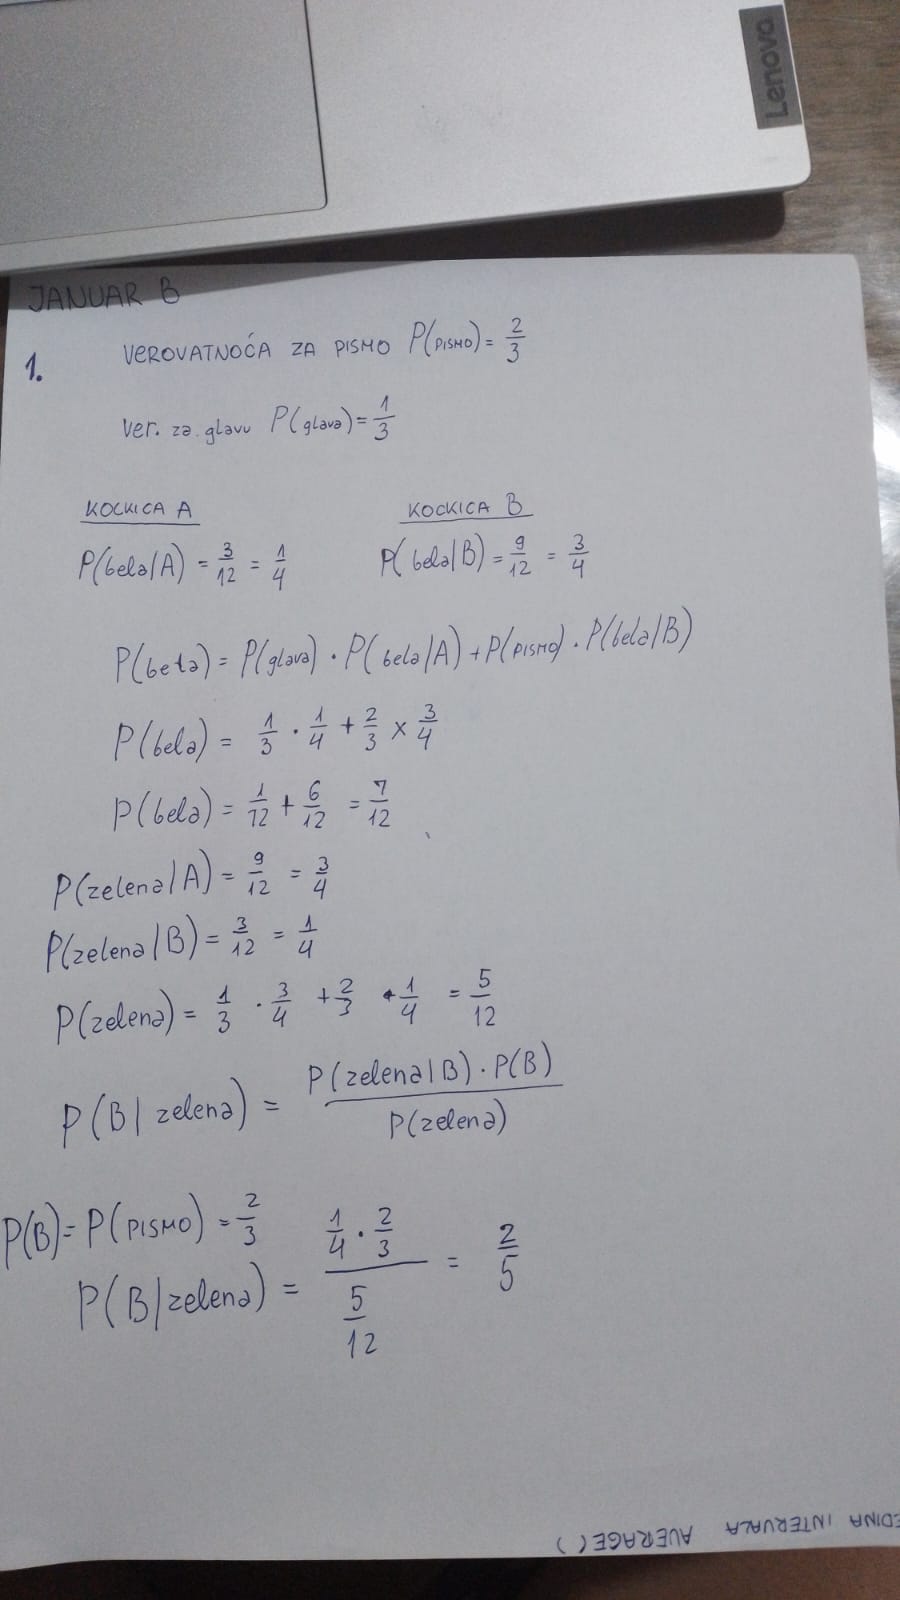 Lenovo
JANUAR B
1. VEROVATNOĆA ZA PISMO P(PISMO) = 2/3
Ver. za glavu P(glava) = 1/3
KOCKICA A KOCKICA B
P(bela/A) = 3/12 = 1/4 P(bela/B) = 9/12 = 3/4
P(bela) = P(glava) · P(bela/A) + P(PISMO) · P(bela/B)
P(bela) = 1/3 · 1/4 + 2/3 × 3/4
P(bela) = 1/12 + 6/12 = 7/12
P(zelena/A) = 9/12 = 3/4
P(zelena/B) = 3/12 = 1/4
P(zelena) = 1/3 · 3/4 + 2/3 · 1/4 = 5/12
P(B| zelena) = P(zelena|B) · P(B) / P(zelena)
P(B) = P(PISMO) = 2/3
P(B/zelena) = (1/4 · 2/3) / (5/12) = 2/5
EDINA INTERVALA AVERAGE()